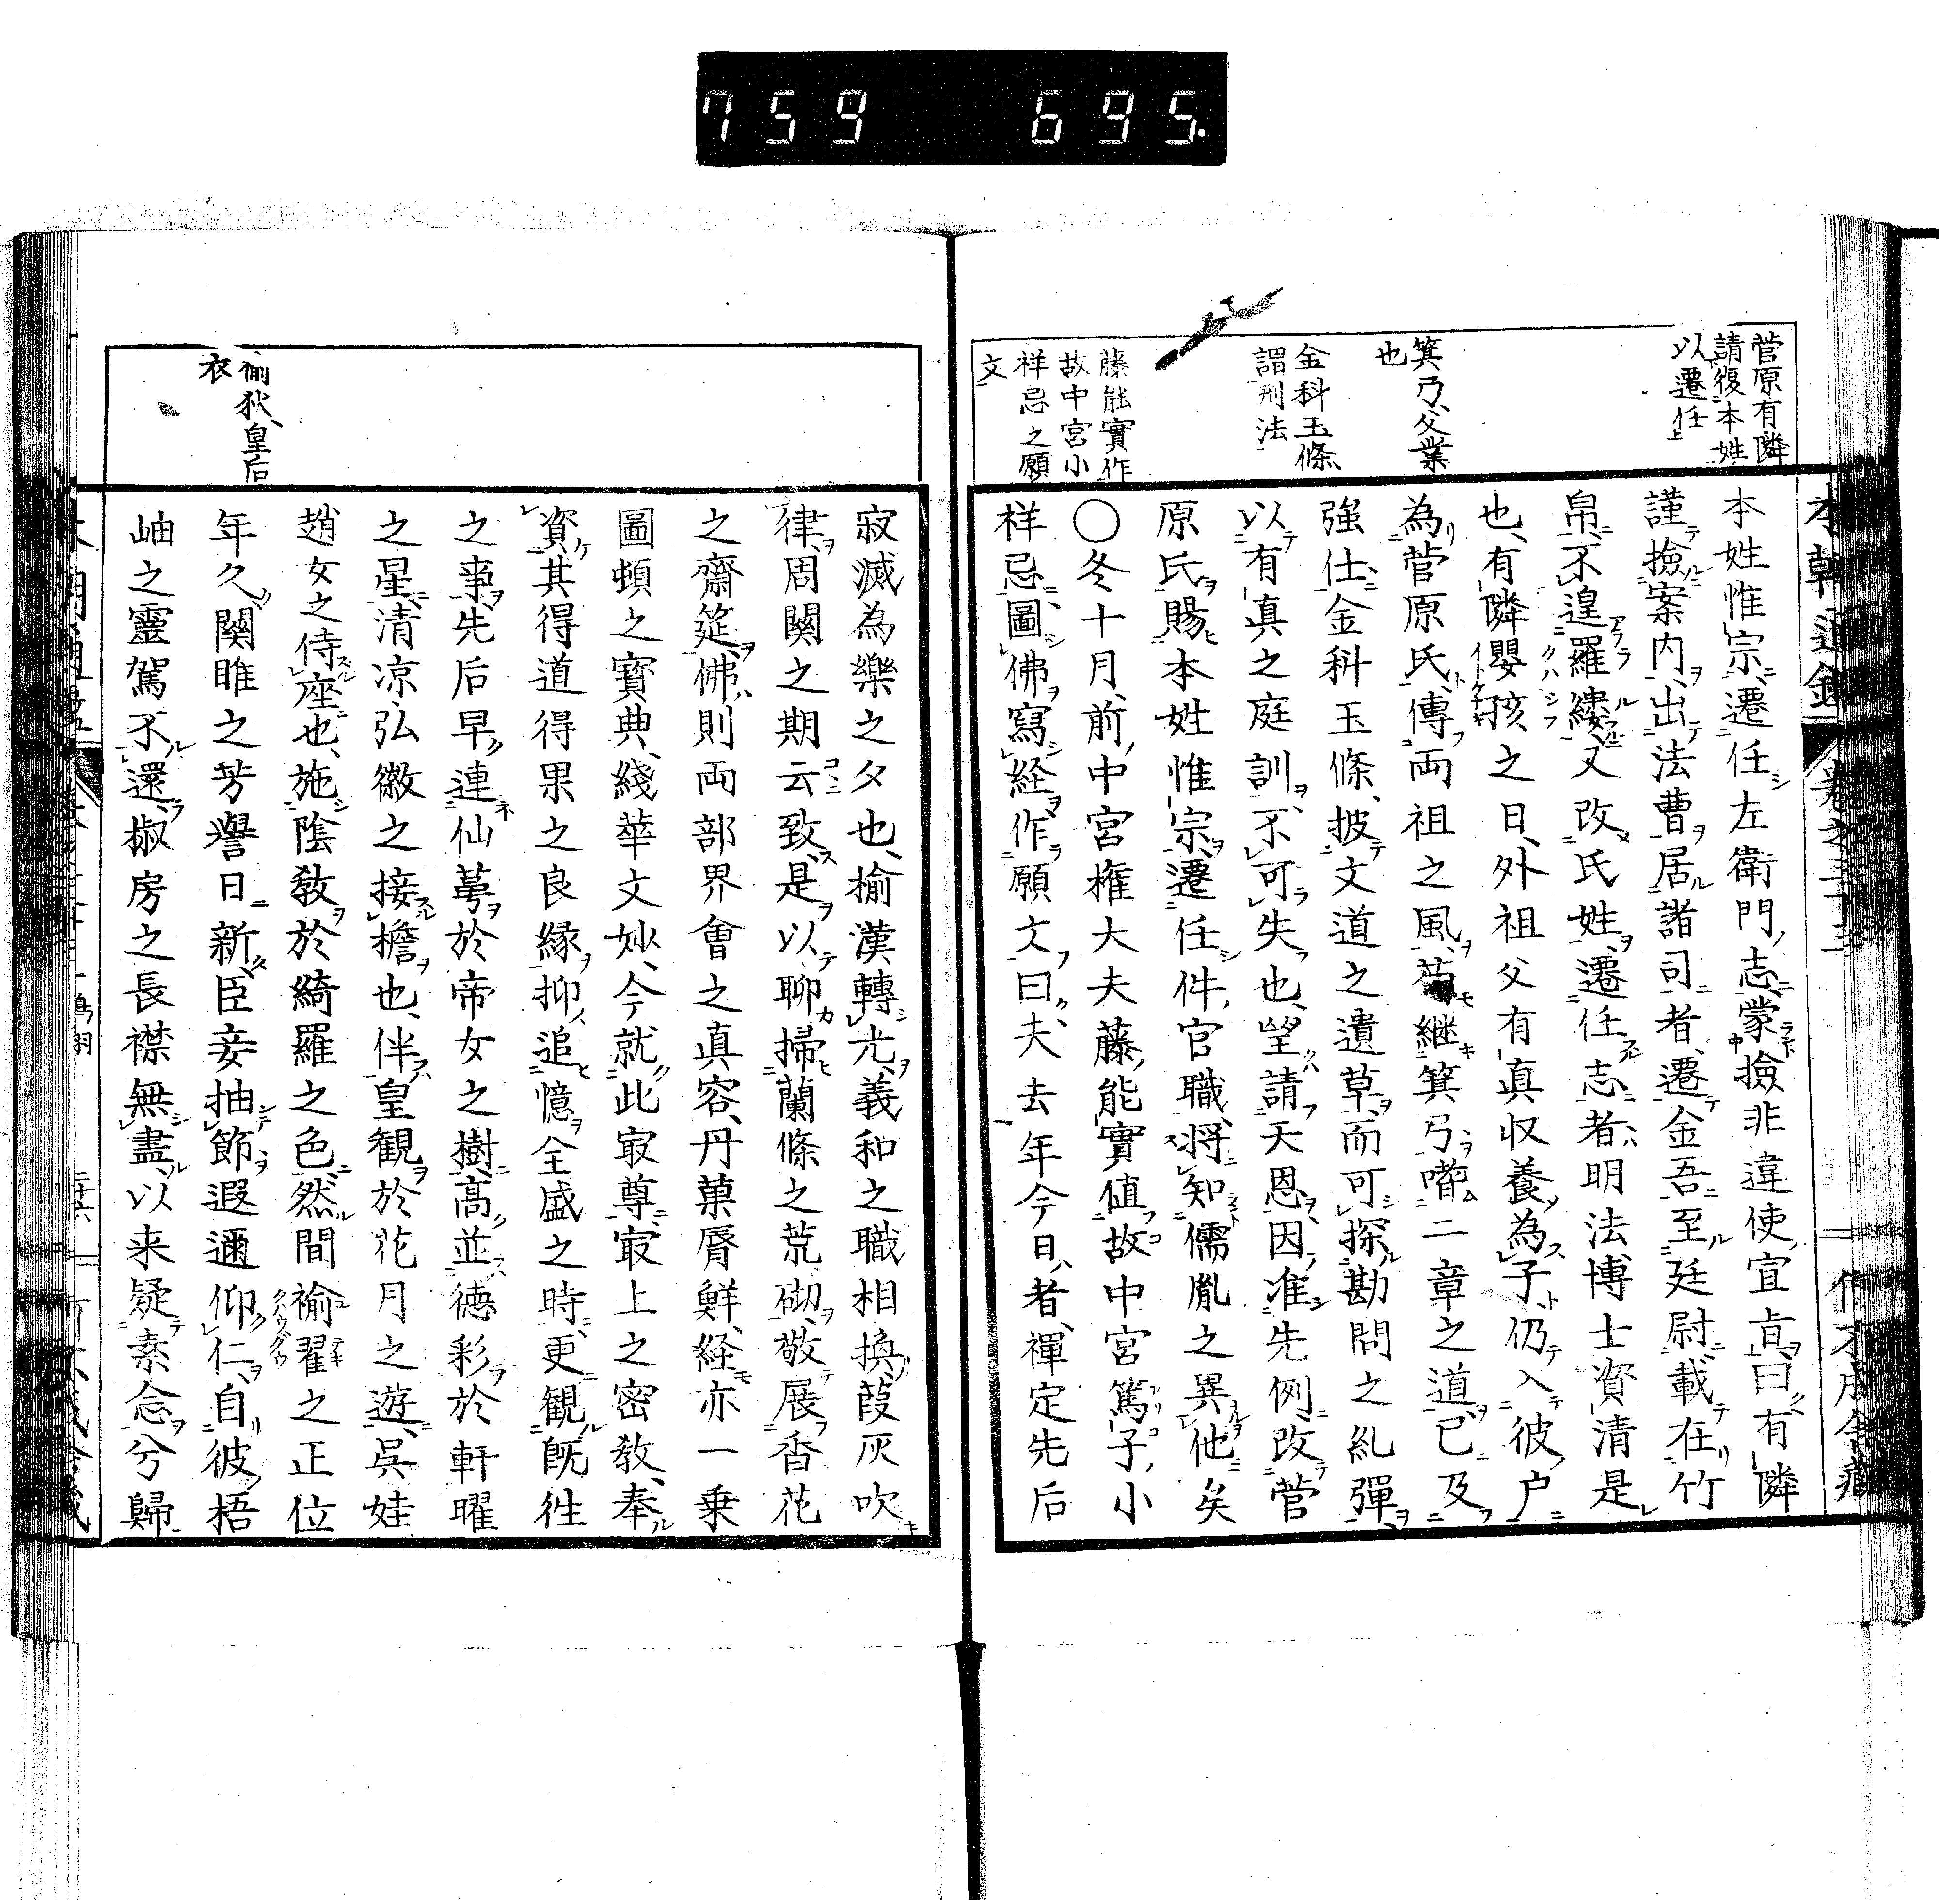 759 695.
菅原有隣
請復本姓
以遷任
箕弓、父業
也
金科玉條
謂刑法
藤能實作
故中宮小
祥忌之願
文
本姓惟宗、遷任左衛門志、蒙撿非違使宣旨曰、有隣
謹撿案内、出法曹居諸司者、遷金吾至廷尉、載在竹
帛、不遑羅縷、又改氏姓、遷任志者、明法博士資清是
也、有隣嬰孩之日、外祖父有真収養為子、仍入彼戸
為菅原氏、傳両祖之風、苟継箕弓、喈二章之道、已及
強仕、金科玉條、披文道之遺草、而可探勘問之糺彈
以有真之庭訓、不可失也、望請天恩、因准先例、改菅
原氏賜本姓惟宗、遷任件官職、将知儒胤之異他矣
○冬十月、前中宮権大夫藤能實値故中宮篤子小
祥忌、圖佛寫経作願文曰、夫去年今日者、禪定先后
寂滅為樂之夕也、楡漢轉光、義和之職相換、葭灰吹
律、周関之期云致、是以聊掃蘭條之荒砌、敬展香花
之齋筵、佛則両部界會之真容、丹菓脣鮮、経亦一乗
圓頓之寳典、綫華文妙、今就此冣尊冣上之密教、奉
資其得道得果之良縁、抑追憶全盛之時、更観既徃
之事、先后早連仙萼於帝女之樹、高並德彩於軒曜
之星、清凉弘徽之接檐也、伴皇観於花月之遊、呉娃
趙女之侍座也、施陰教於綺羅之色、然間褕翟之正位
年久、関雎之芳譽日新、臣妾抽節、遐邇仰仁、自彼梧
岫之靈駕不還、椒房之長襟無盡、以来疑素念兮歸
褕狄、皇后
衣